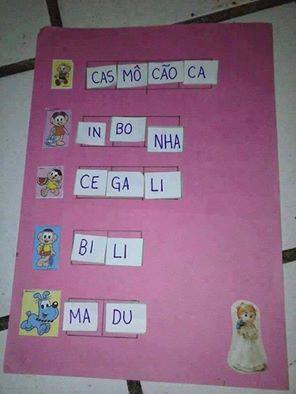 CAS MÔ CÃO CA
IN BO NHA
CE GA LI
BI LI
MA DU